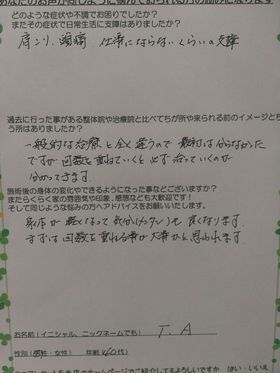 あなたのお声が同じように悩んでおられる方の励みになります
どのような症状や不調でお困りでしたか？
またその症状で日常生活に支障はありましたか？
肩こり、頭痛 仕事にならないくらいの支障
過去に行った事がある整体院や治療院と比べてちがう所や来られる前のイメージとち
う所はありましたか？
一般的な治療と全く違うので最初は分からなかった
ですが回数を重ねていくと必ず治っていくのが
分かってきます。
施術後の身体の変化やできるようになった事などございますか？
またらくらく家の雰囲気や印象、感想なども大歓迎です！
そして同じような悩みの方へアドバイスをお願いいたします。
身体が軽くなって気分(メンタル)も良くなります。
まずは回数を重ねる事が大事かと思われます。
お名前(イニシャル、ニックネームでも) T.A
性別(男性・女性) 年齢(40代)
ホームページでご紹介してもよろしいですか はい・いいえ